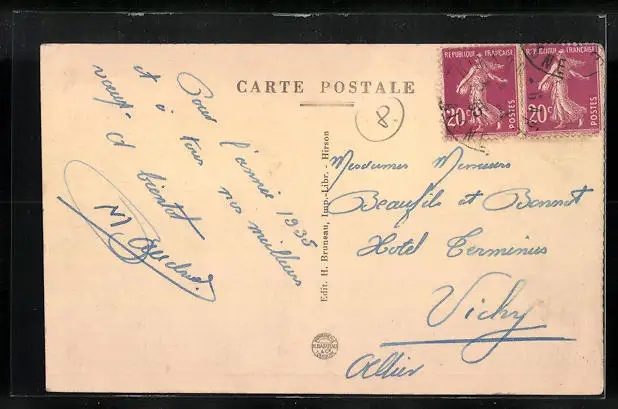 CARTE POSTALE
8
REPUBLIQUE FRANÇAISE
20c POSTES
REPUBLIQUE FRANÇAISE
20c POSTES
Pour l'année 1935
et à tous nos meilleurs
voeux. A bientôt
Edit. H. Bruneau, Imp.-Libr. - Hirson
Mesdames Messieurs
Beaufils et Bonnot
Hotel Terminus
Vichy
Allier